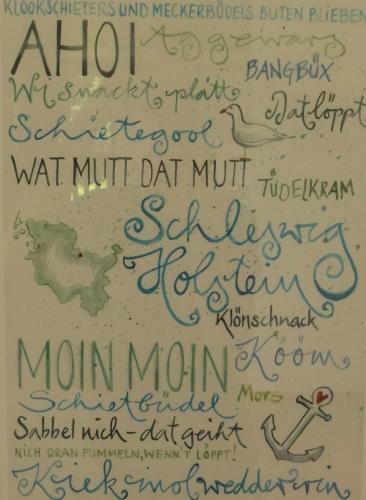 KLOOKSCHIETERS UND MECKERBÜDELS BUTEN BLIEBEN
AHOI Aggewars
BANGBÜX
Wi snackt platt
Dat löppt
Schietegool
WAT MUTT DAT MUTT
TÜDELKRAM
Schleswig
Holstein
Klönschnack
MOIN MOIN Kööm
Schietbüdel Mors
Sabbel nich-dat geiht
NICH DRAN FUMMELN, WENN'T LÖPPT!
Kiek mol wedder rin